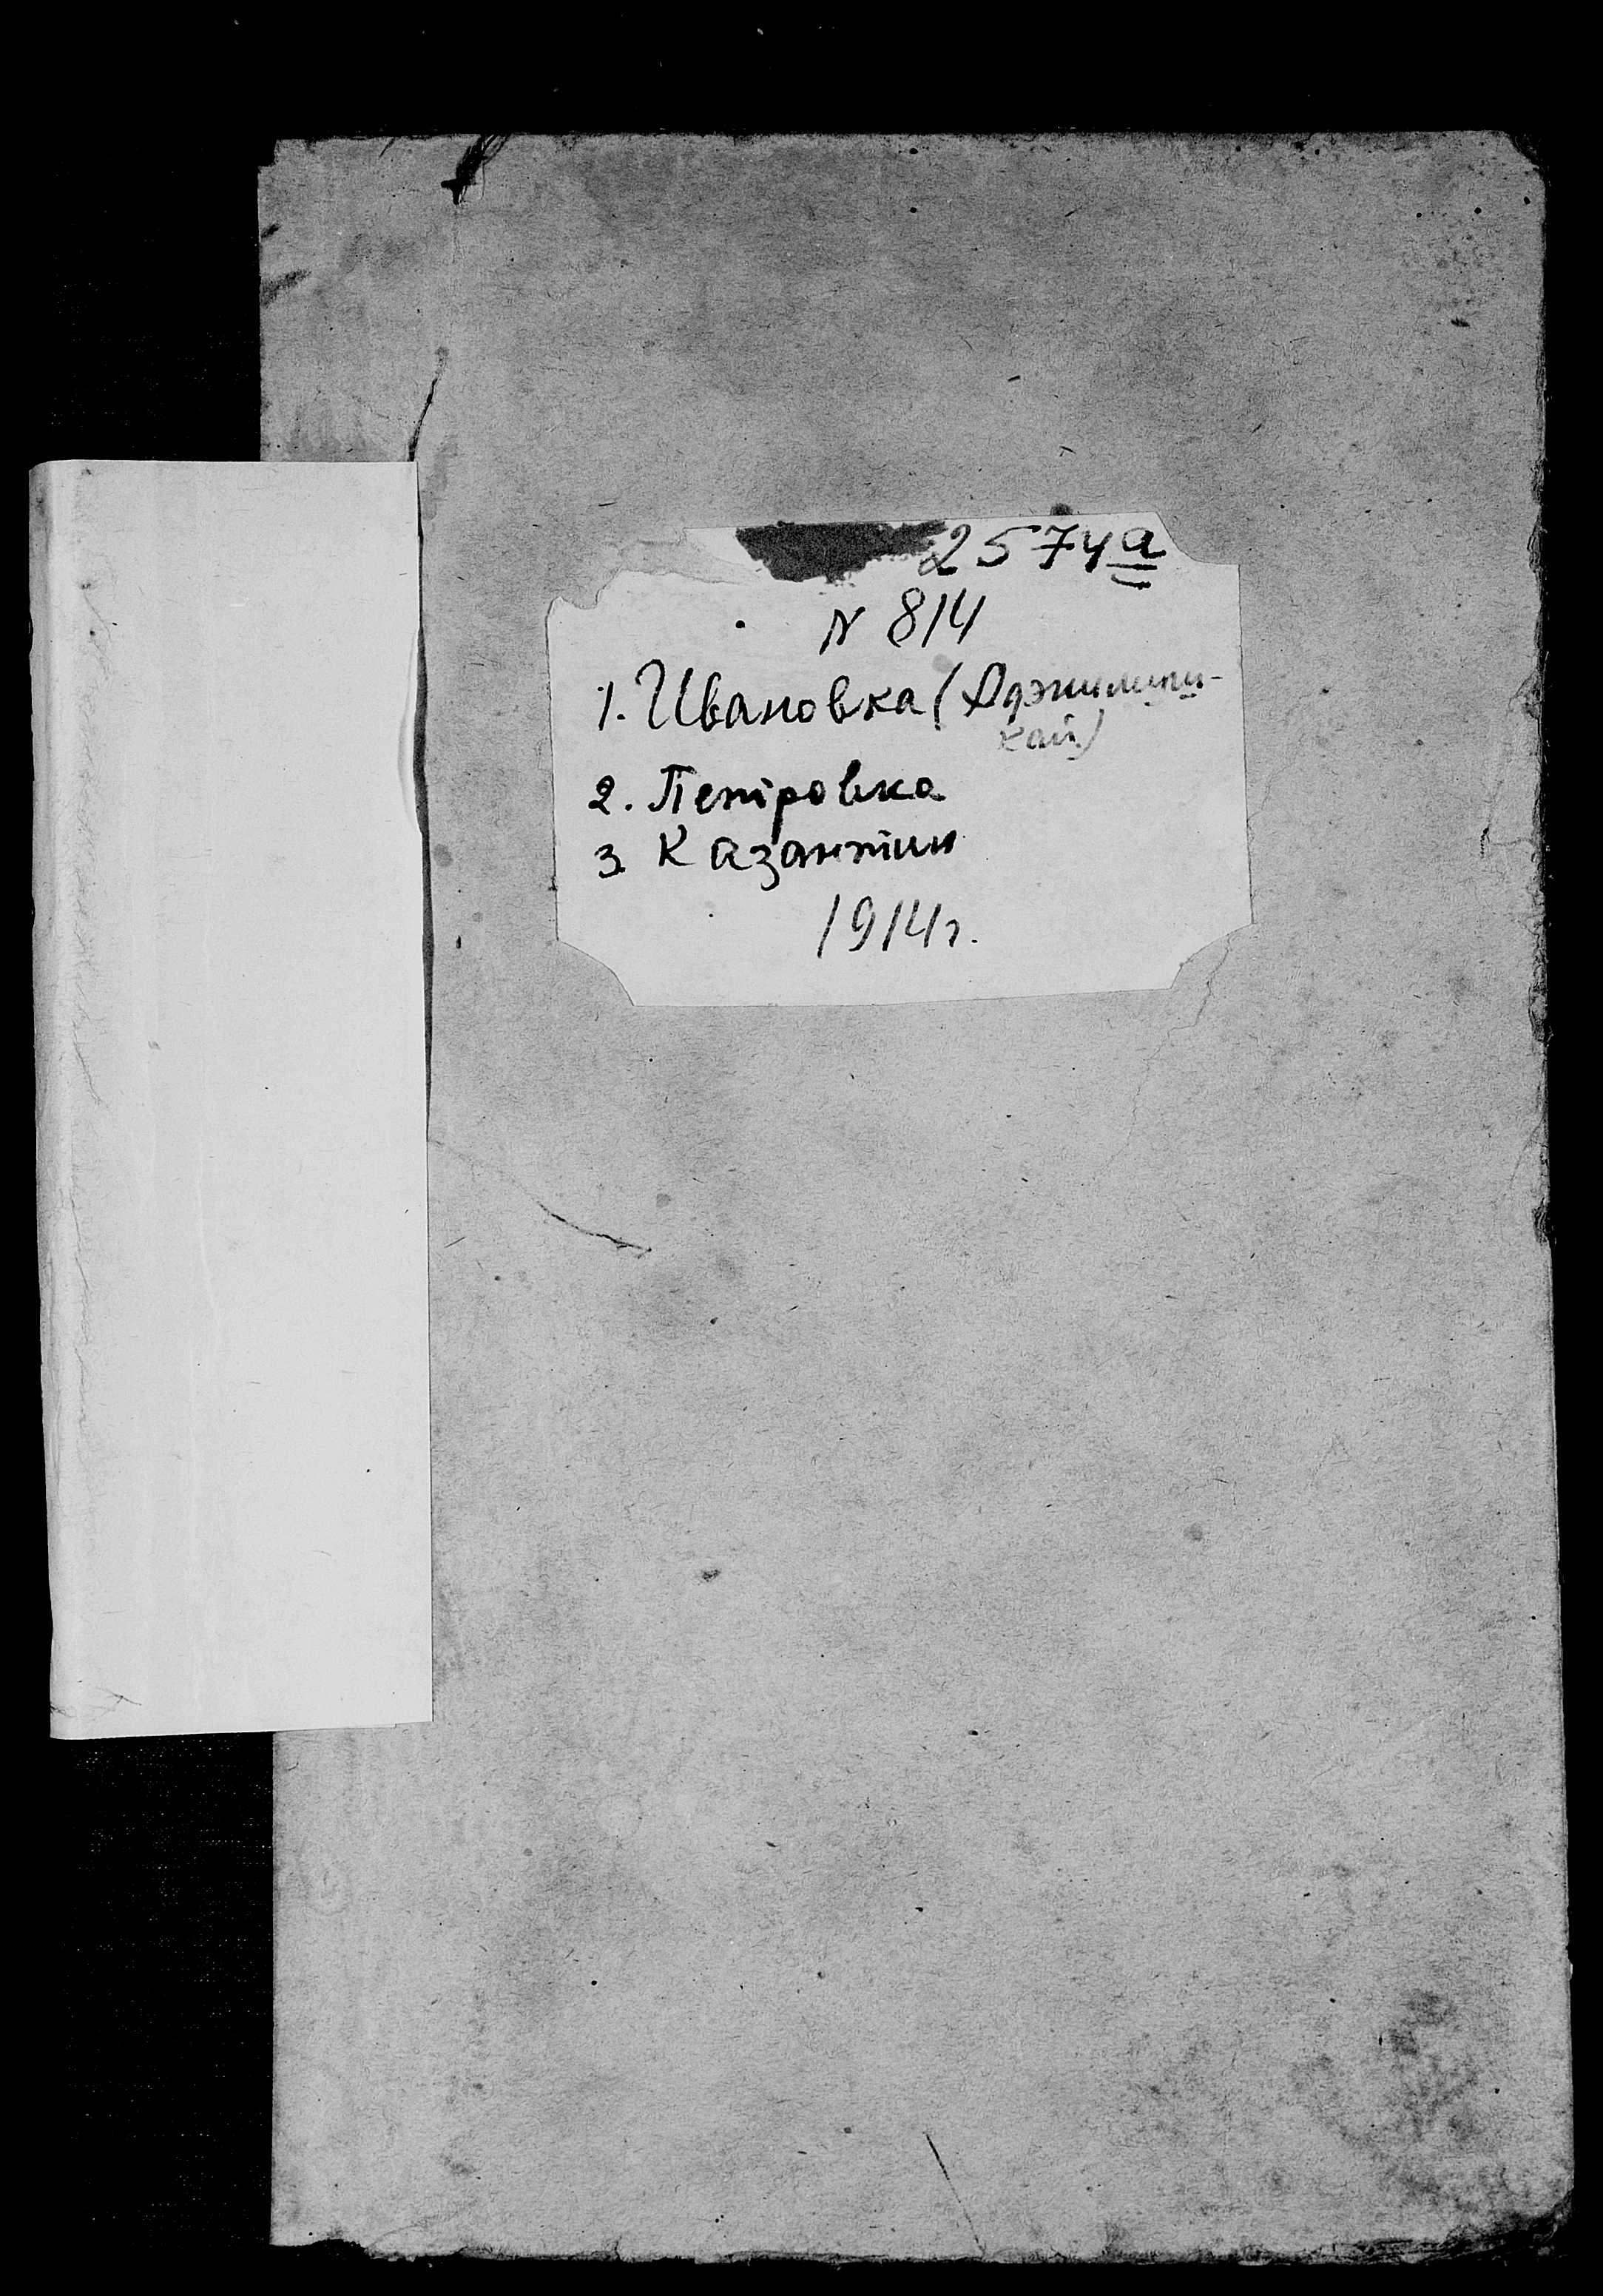 2574а
N 814
1. Ивановка (
кай)
2. Петровка
3 Казантин
1914г.